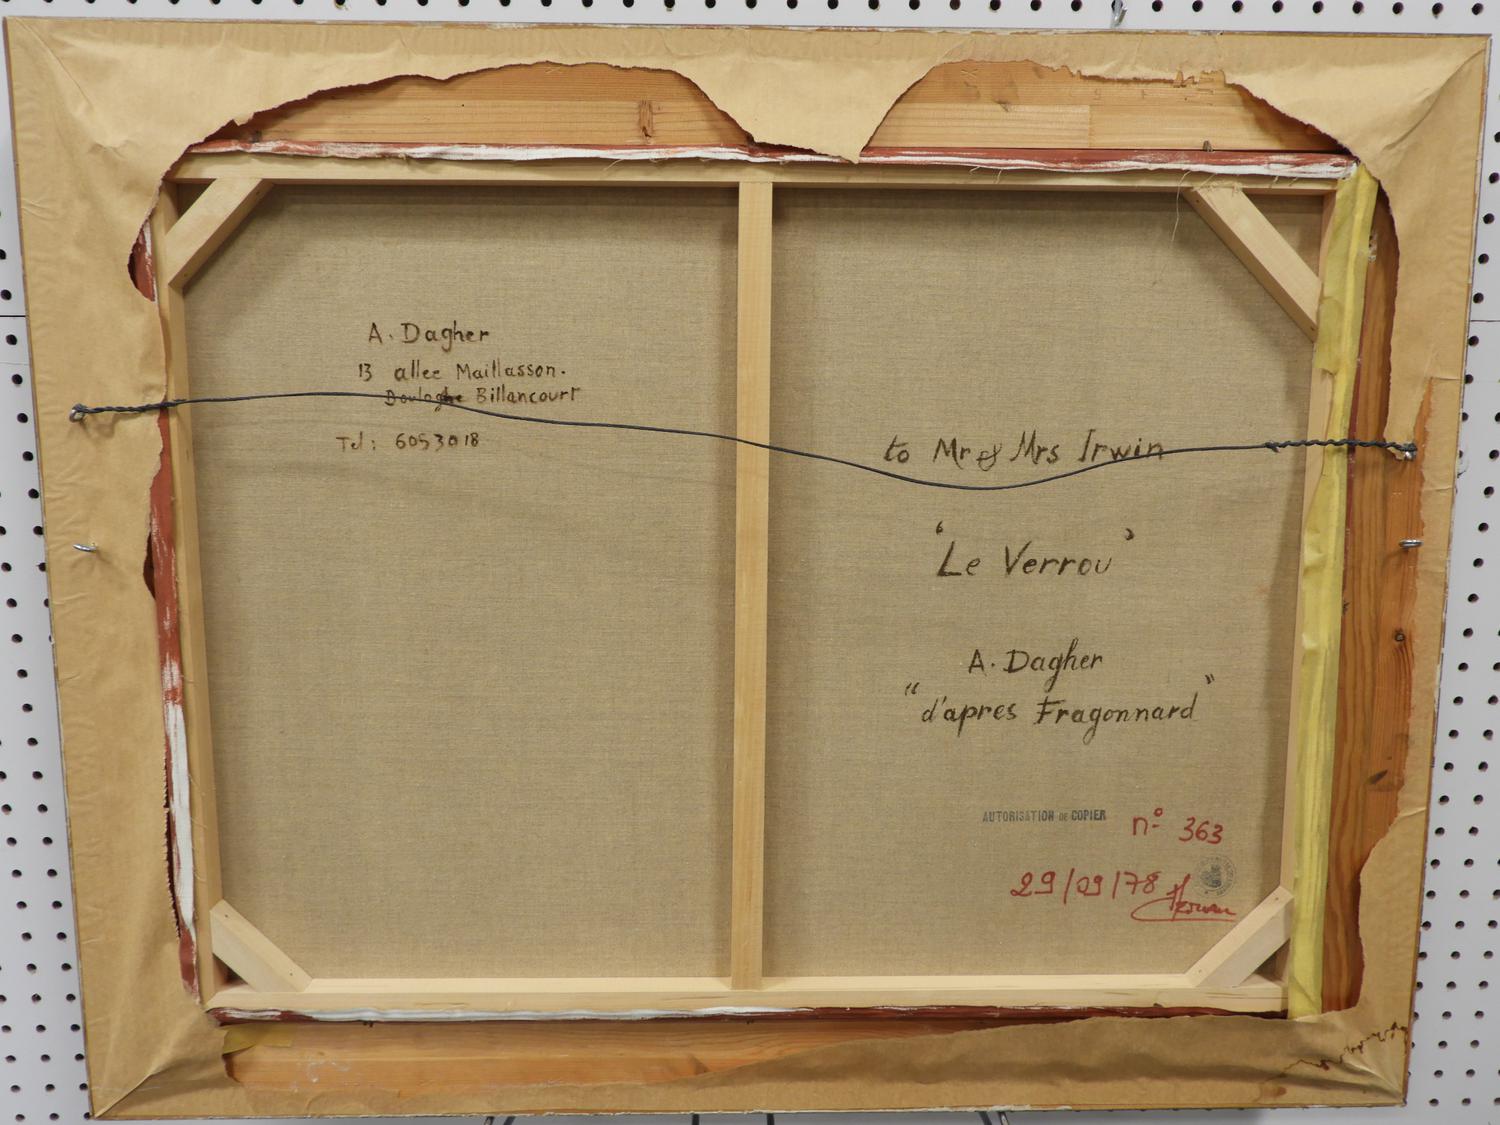 A. Dagher
13 allee Maillasson.
Boulogne Billancourt
Tel: 6053018
to Mr & Mrs Irwin
"Le Verrou"
A. Dagher
"d'apres Fragonnard"
AUTORISATION DE COPIER n° 363
29/09/78